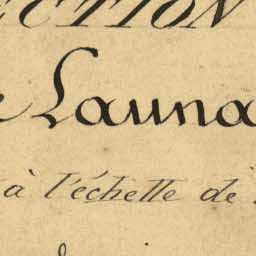 ECTION
e Launa
à l'échelle de